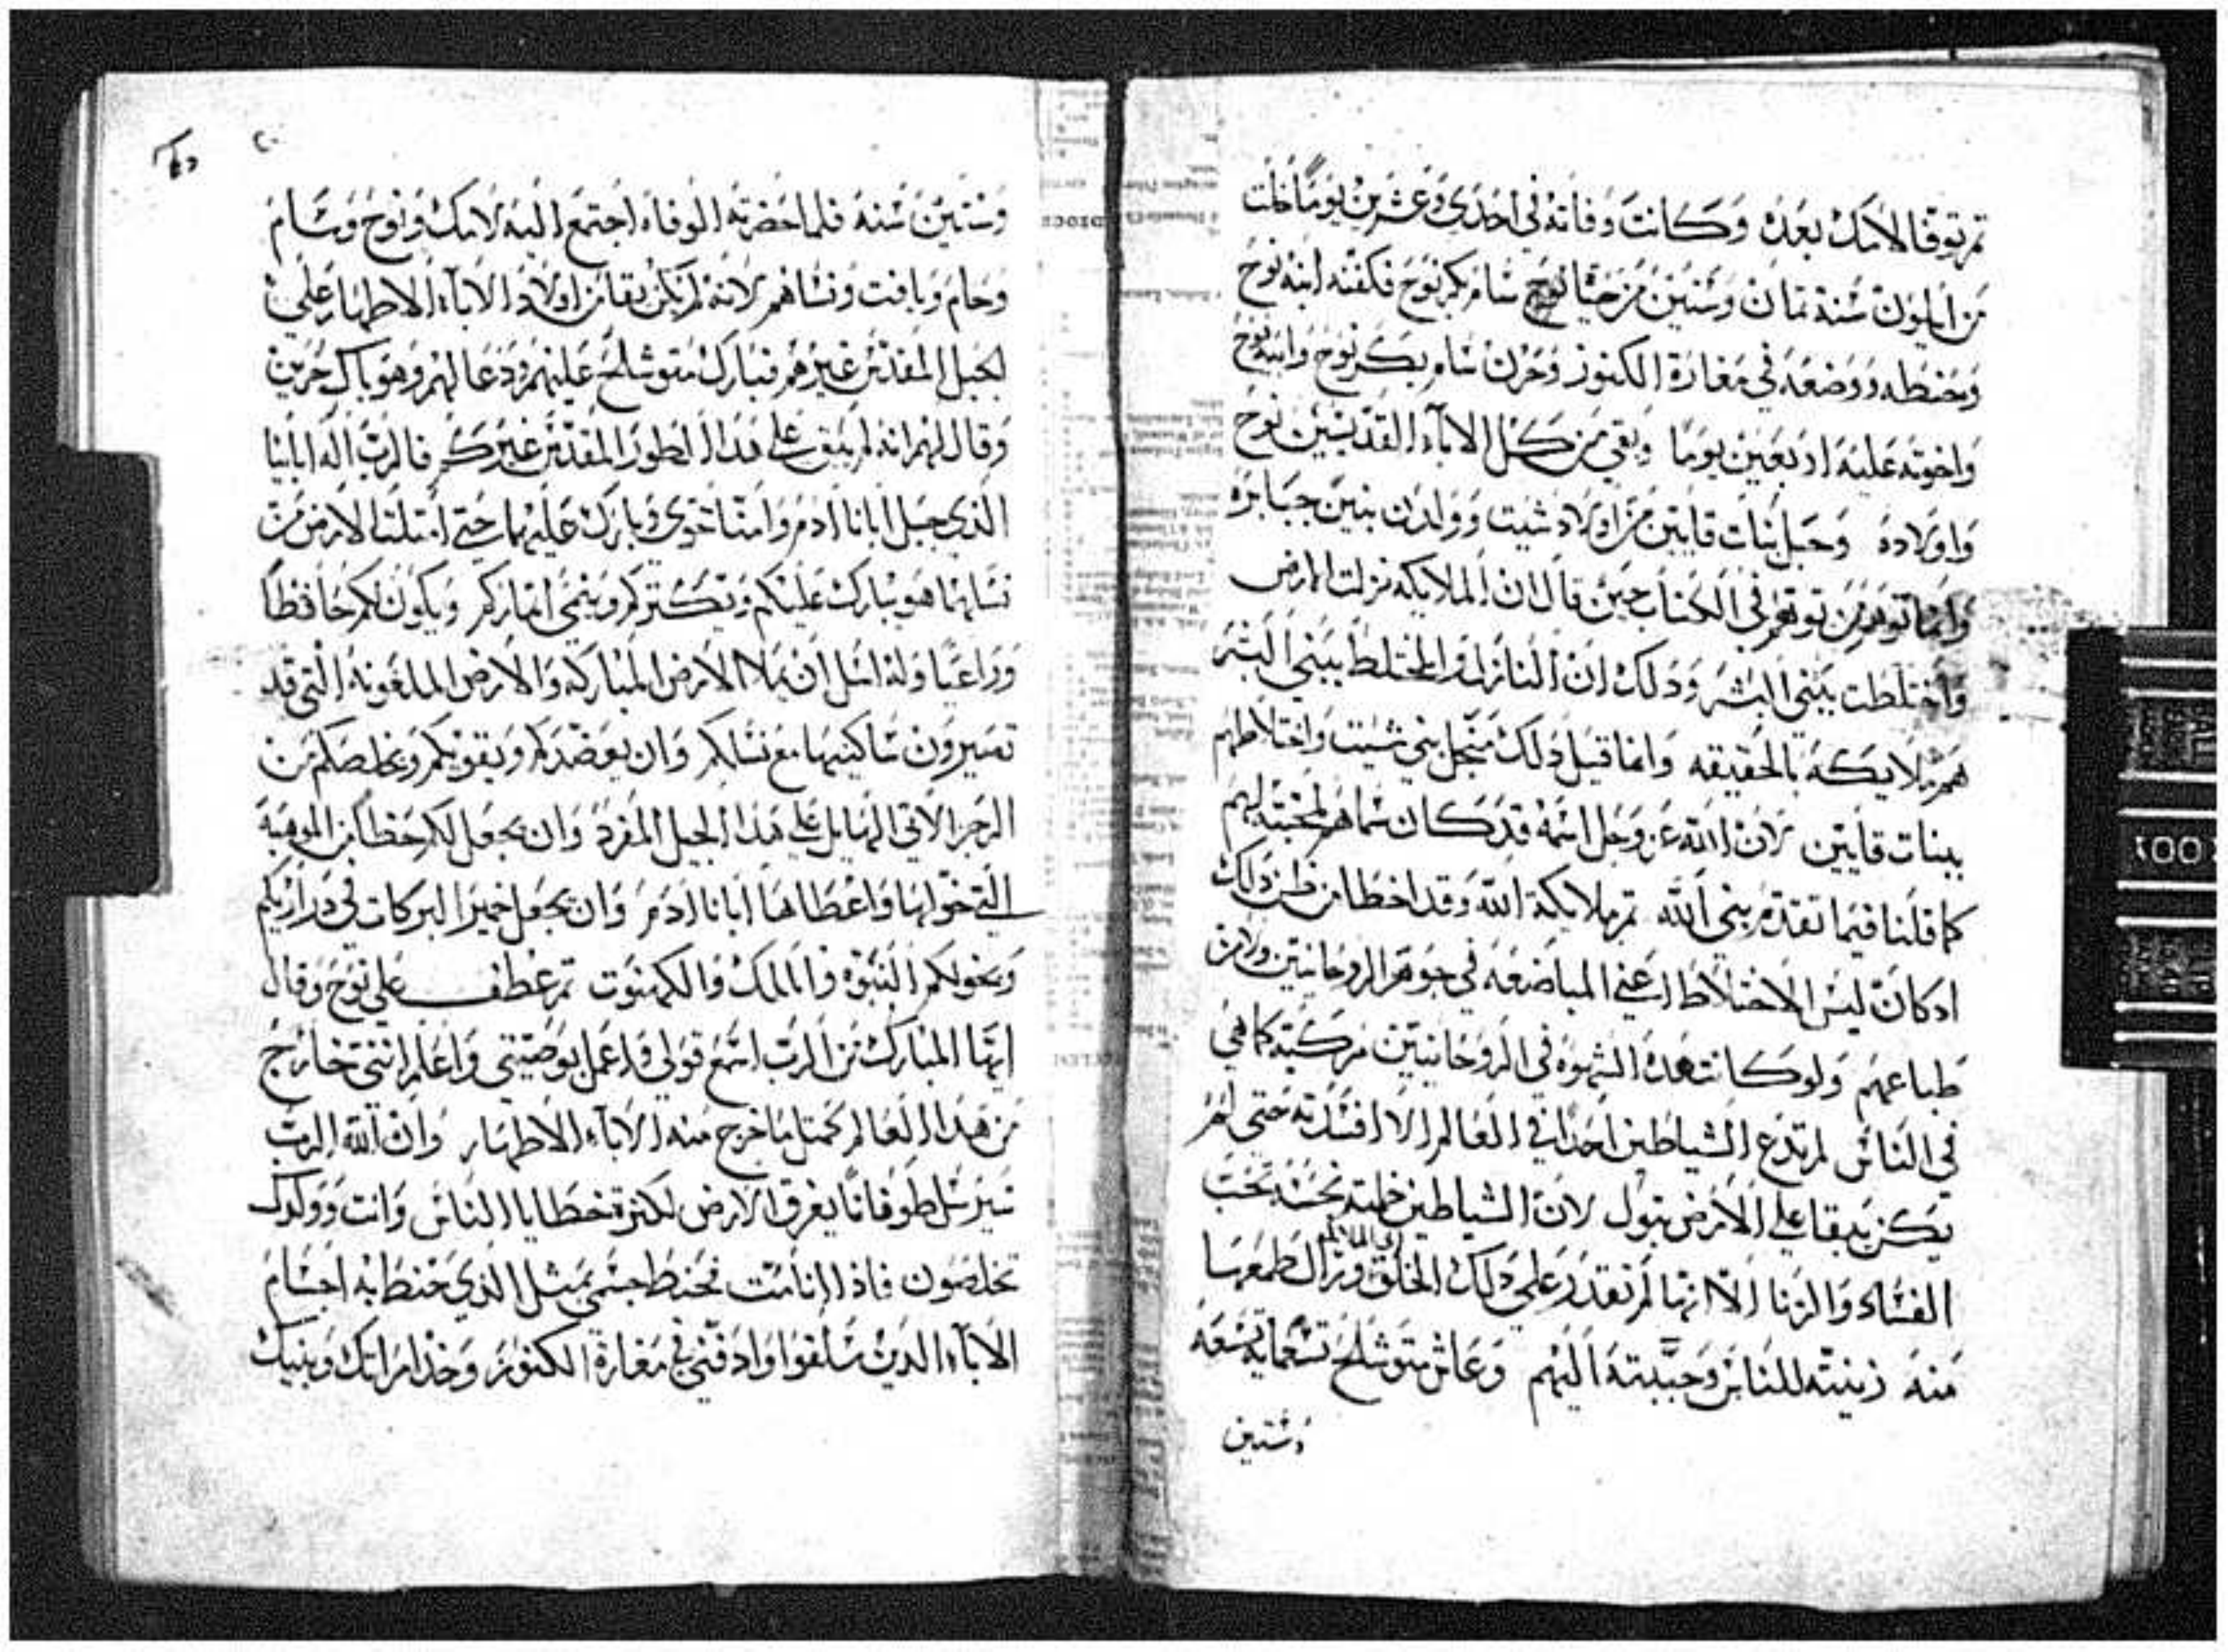 تم توفا لامك بعده وكانت وفاته في احدي وعشرين يوما خلت
من ايلون سنة ثمان وستين من حيا نوح سام بكر نوح فكفنه ابنه نوح
وحنطه ووضعه في مغارة الكنوز وحزن سام بكر نوح وابنه نوح
واخوته عليه اربعين يوما وبقي من كل الاباء القديسين نوح
واولاده وحبل بنات قايين من اولاد شيت وولدن بنين جبابره
وانما توهم من توهم في الكتاب حين قال ان الملايكه نزلت الارض
واختلطت ببني البشر ودلك ان النازل والمختلط ببني البشر
هم ملايكه بالحقيقه وانما قيل دلك منجل بني شيت واختلاطهم
ببنات قايين لان الله عز وجل اسمه قد كان سماهم لمحبته لهم
كما قلنا فيما تقدم بني الله تم ملايكة الله وقد اخطا من ظن دلك
ادكان ليس الاختلاط اعني المباضعه في جوهر الروحانيين ولا من
طباعهم ولو كانت هده الشهوه في الروحانيين مركبة كما هي
في الناس لم تدع الشياطين احدا في العالم الا افسدته حتي لم
يكن يبقا علي الارض بتول لان الشياطين خبيثه نجسه تحب
الفساد والزنا الا انها لم تقدر علي دلك الخلق وزال طمعها
منه زينته للناس وحببته اليهم وعاش متوشلح تسعمايه تسعه
وستين
وستين سنه فلما حضرته الوفاه اجتمع اليه لامك ونوح وسام
وحام ويافت ونساهم لانه لم يكن بقا من اولاد الاباء الاطهار علي
لجبل المقدس غيرهم فبارك متوشلح عليهم ودعا لهم وهو باك حزين
وقال لهم انه لم يبق علي هدا الطور المقدس غيركم فالرب اله ابايا
الذي جبل ابانا ادم وامنا حوي وبارك عليهما حتي امتلت الارض من
نسلهما هو يبارك عليكم ويكتركم وينمي اتماركم ويكون لكم حافظا
وراعيا وله اسل ان يملا الارض المباركه والارض الملعونه التي قد
تصيرون ساكنيها مع نسلكم وان يعضدكم ويقويكم ويخلصكم من
الرجز الاتي الهايل علي هدا الجيل المفرد وان يجعل لكم حظا من الموهبه
التي خولها واعطاها ابانا ادم وان يجعل خمير البركات في دراريكم
ويخولكم النبوه والملك والكهنوت تم عطف علي نوح وقال
ايها المبارك من الرب اسمع قولي واعمل بوصيتي واعلم انني خارج
من هدا العالم كمتل ما خرج منه الاباء الاطهار وان الله الرب
سيرسل طوفانا يغرق الارض لكثرة خطايا الناس وانت وولدك
تخلصون فاذا انا مت تحنط جسمي بمثل الذي حنط به اجسام
الاباء الدين سلفوا وادفني في مغارة الكنوز وخد امراتك وبنيك